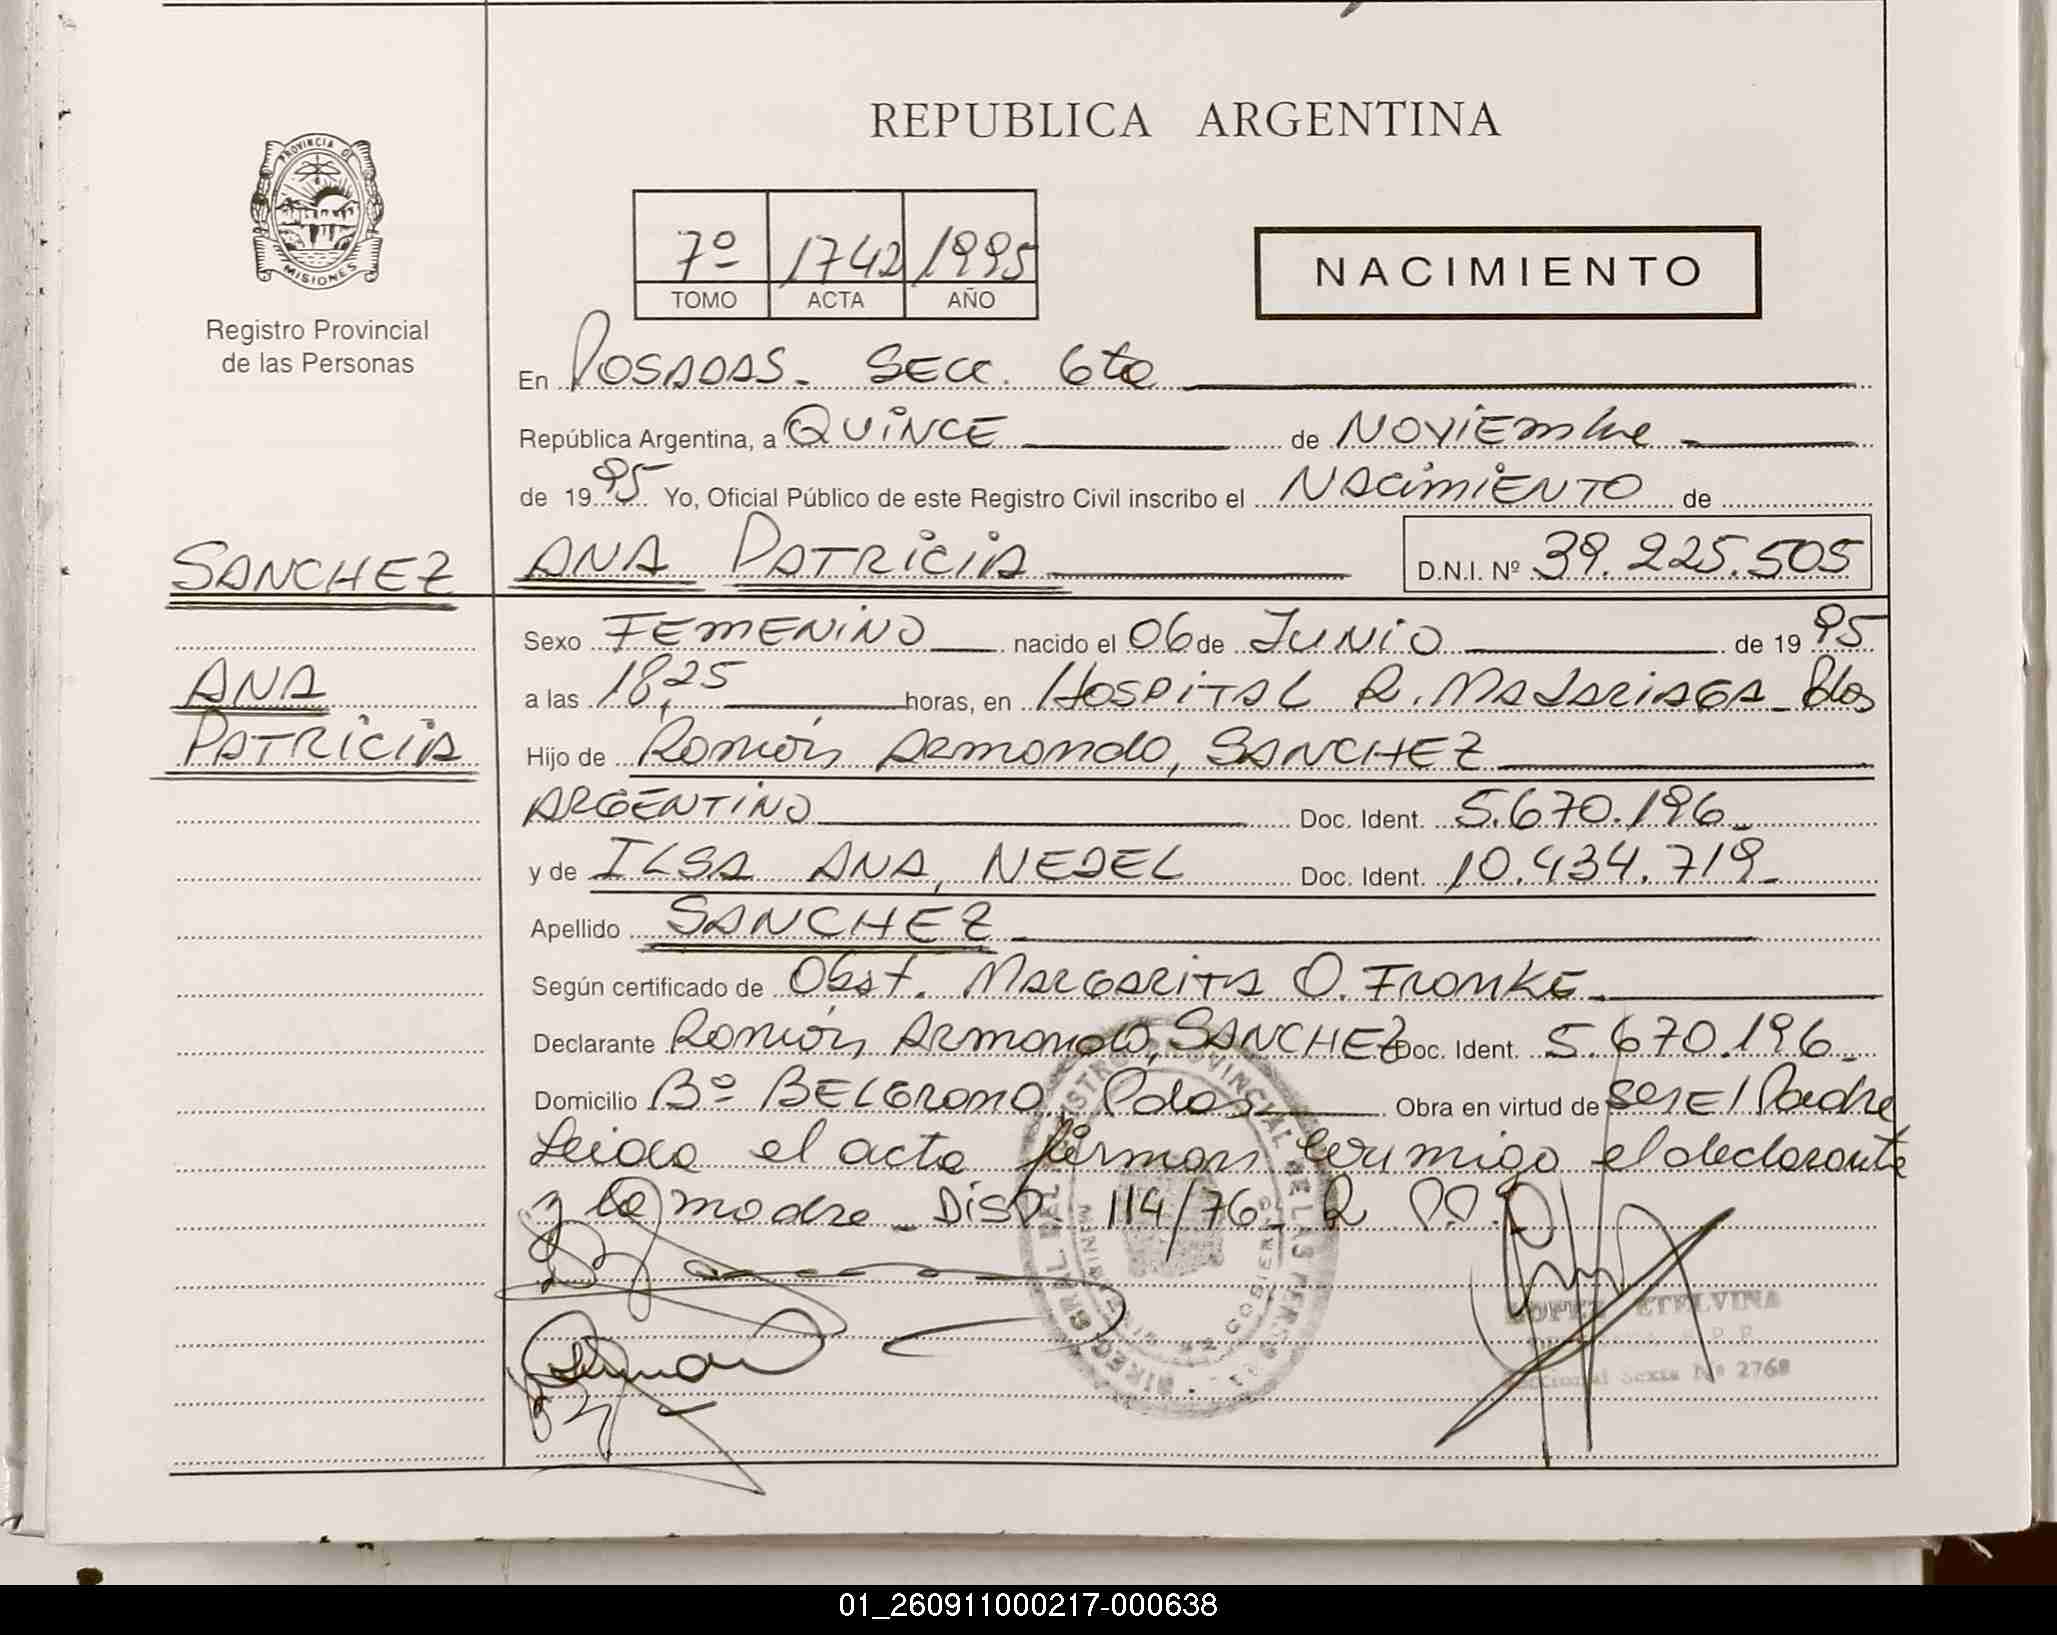 REPUBLICA ARGENTINA
PROVINCIA DE
MISIONES
Registro Provincial
de las Personas
7º 1742 1995
TOMO ACTA AÑO
NACIMIENTO
En POSADAS. SECC. 6ta
República Argentina, a QUINCE de NOVIEMbre
de 1995 Yo, Oficial Público de este Registro Civil inscribo el NACIMIENTO de
SANCHEZ
ANA PATRICIA D.N.I. Nº 39.225.505
Sexo FEMENINO nacido el 06 de JUNIO de 1995
ANA
a las 18,25 horas, en HOSPITAL R. MADARIAGA - Pdas
PATRICIA
Hijo de Ramón Armando, SANCHEZ
ARGENTINO Doc. Ident. 5.670.196-
y de ILSA ANA, NEDEL Doc. Ident. 10.434.719-
Apellido SANCHEZ
Según certificado de Obst. MARGARITA O. FRONKE
Declarante Ramón Armando, SANCHEZ Doc. Ident. 5.670.196-
Domicilio Bº BELGRANO, Pdas Obra en virtud de ser El Padre
Leida el acta firman conmigo el declarante
y la madre - DISP. 114/76-
LOPEZ ETELVINA
Seccional Sexta Nº 2768
01_260911000217-000638